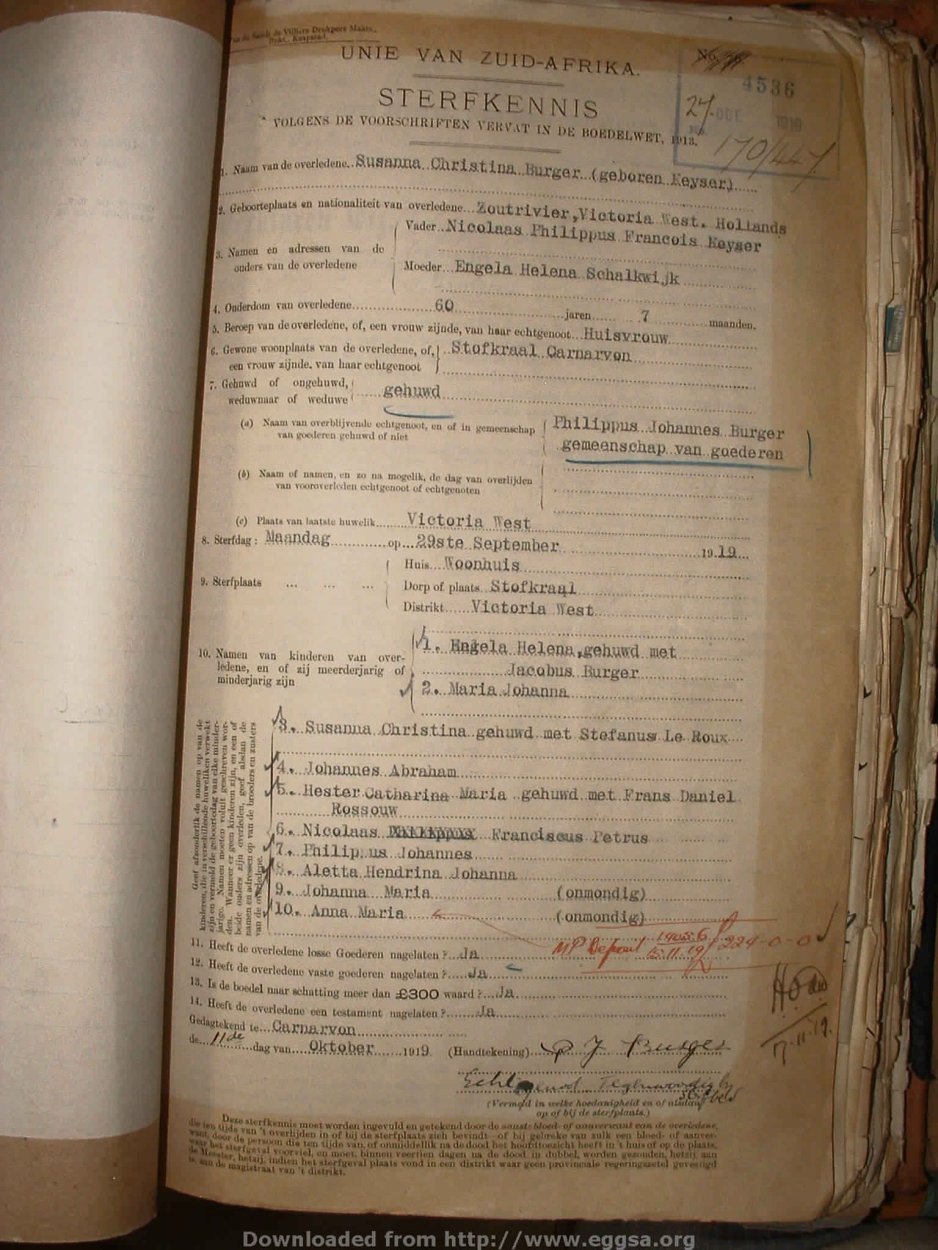 de Villiers Drukpers Maats.,
Bpkt., Kaapstad.
UNIE VAN ZUID-AFRIKA.
STERFKENNIS
VOLGENS DE VOORSCHRIFTEN VERVAT IN DE BOEDELWET, 1913.
No.
4536
24 DEC 1919
170/447
1. Naam van de overledene Susanna Christina Burger (geboren Keyser)
2. Geboorteplaats en nationaliteit van overledene Zoutrivier, Victoria West. Hollands
3. Namen en adressen van de ouders van de overledene
Vader Nicolaas Philippus Francois Keyser
Moeder Engela Helena Schalkwijk
4. Ouderdom van overledene 60 jaren 7 maanden.
5. Beroep van de overledene, of, een vrouw zijnde, van haar echtgenoot Huisvrouw
6. Gewone woonplaats van de overledene, of, een vrouw zijnde, van haar echtgenoot Stofkraal Carnarvon
7. Gehuwd of ongehuwd, weduwnaar of weduwe gehuwd
(a) Naam van overblijvende echtgenoot, en of in gemeenschap van goederen gehuwd of niet
Philippus Johannes Burger
gemeenschap van goederen
(b) Naam of namen, en zo na mogelik, de dag van overlijden
van vooroverleden echtgenoot of echtgenoten
(c) Plaats van laatste huwelik Victoria West
8. Sterfdag: Maandag op 29ste September 1919
9. Sterfplaats
Huis Woonhuis
Dorp of plaats Stofkraal
Distrikt Victoria West
10. Namen van kinderen van overledene, en of zij meerderjarig of minderjarig zijn
1. Engela Helena, gehuwd met
Jacobus Burger
2. Maria Johanna
3. Susanna Christina gehuwd met Stefanus Le Roux
4. Johannes Abraham
5. Hester Catharina Maria gehuwd met Frans Daniel
Rossouw
6. Nicolaas Franciscus Petrus
7. Philippus Johannes
8. Aletta Hendrina Johanna
9. Johanna Maria (onmondig)
10. Anna Maria (onmondig)
Geef afzonderlik de namen op van de
kinderen, die in verschillende huweliken verwekt
zijn en vermeld de geboortedag van elke minder-
jarige. Namen moeten voluit geschreven wor-
den. Wanneer er geen kinderen zijn, en een of
beide ouders zijn overleden, geef alsdan de
namen en adressen op van de broeders en zusters
van de overledene.
11. Heeft de overledene losse Goederen nagelaten? Ja
12. Heeft de overledene vaste goederen nagelaten? Ja
13. Is de boedel naar schatting meer dan £300 waard? Ja
14. Heeft de overledene een testament nagelaten? Ja
229-0-0
Gedagtekend te Carnarvon
de 11de dag van Oktober 1919 (Handtekening) P J Burger
17.11.19.
Echtgenoot Tegenwoordig by
(Vermeld in welke hoedanigheid en of aldaar
op of bij de sterfplaats.)
Deze sterfkennis moet worden ingevuld en getekend door de naaste bloed- of aanverwant van de overledene,
die ten tijde van 't overlijden in of bij de sterfplaats zich bevindt of bij gebreke van zulk een bloed- of aanver-
want, door de persoon die ten tijde van, of onmiddellik na de dood het hoofdtoezicht heeft in 't huis of op de plaats,
waar het sterfgeval voorviel, en moet, binnen veertien dagen na de dood in dubbel, worden gezonden, hetzij, aan
de Meester, hetzij, indien het sterfgeval plaats vond in een distrikt waar geen provinciale regeringszetel gevestigd
is, aan de magistraat van 't distrikt.
Downloaded from http://www.eggsa.org